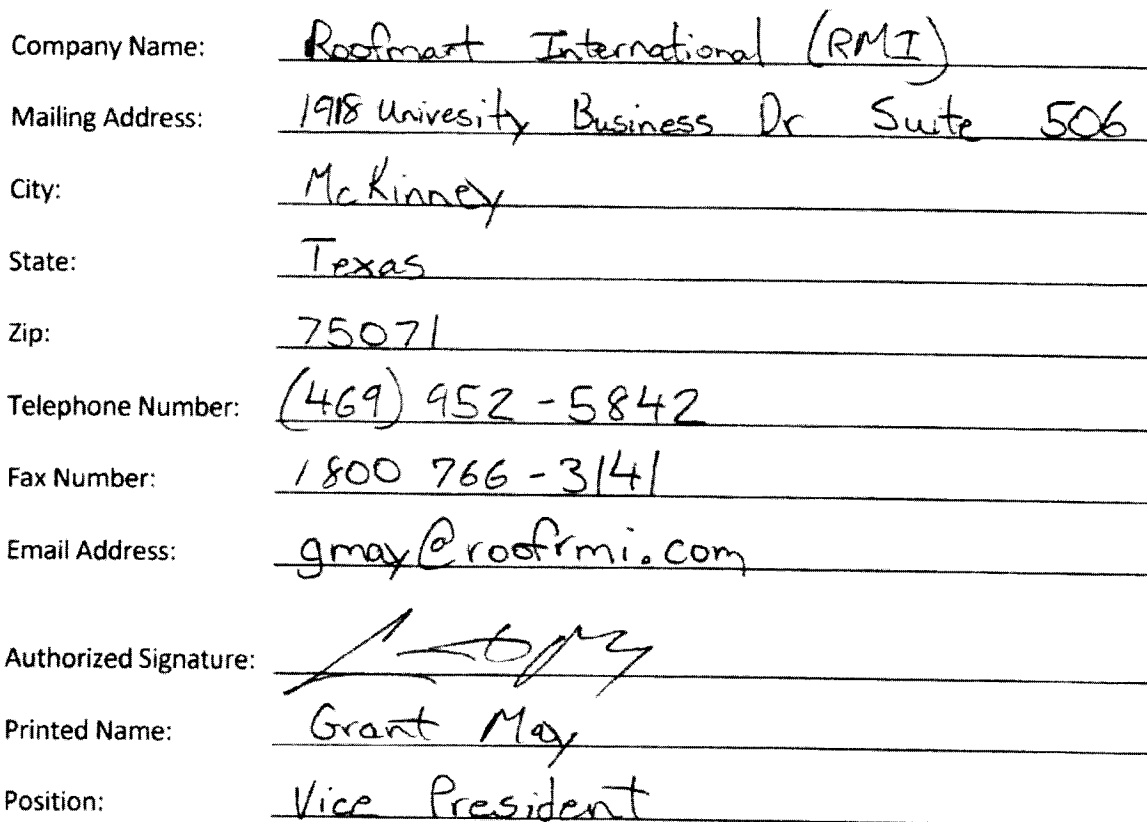 Company Name: Roofmart International (RMI)
Mailing Address: 1918 Univesity Business Dr Suite 506
City: McKinney
State: Texas
Zip: 75071
Telephone Number: (469) 952-5842
Fax Number: 1800 766-3141
Email Address: gmay@roofrmi.com
Authorized Signature:
Printed Name: Grant May
Position: Vice President